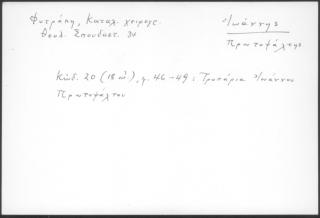 Φυτράκη, Καταλ. χειρογρ.
Θεολ. Σπουδαστ. 34
Ἰωάννης
Πρωτοψάλτης
Κώδ. 20 (18 αἰ.), φ. 46-49: Τροπάρια Ἰωάννου
Πρωτοψάλτου